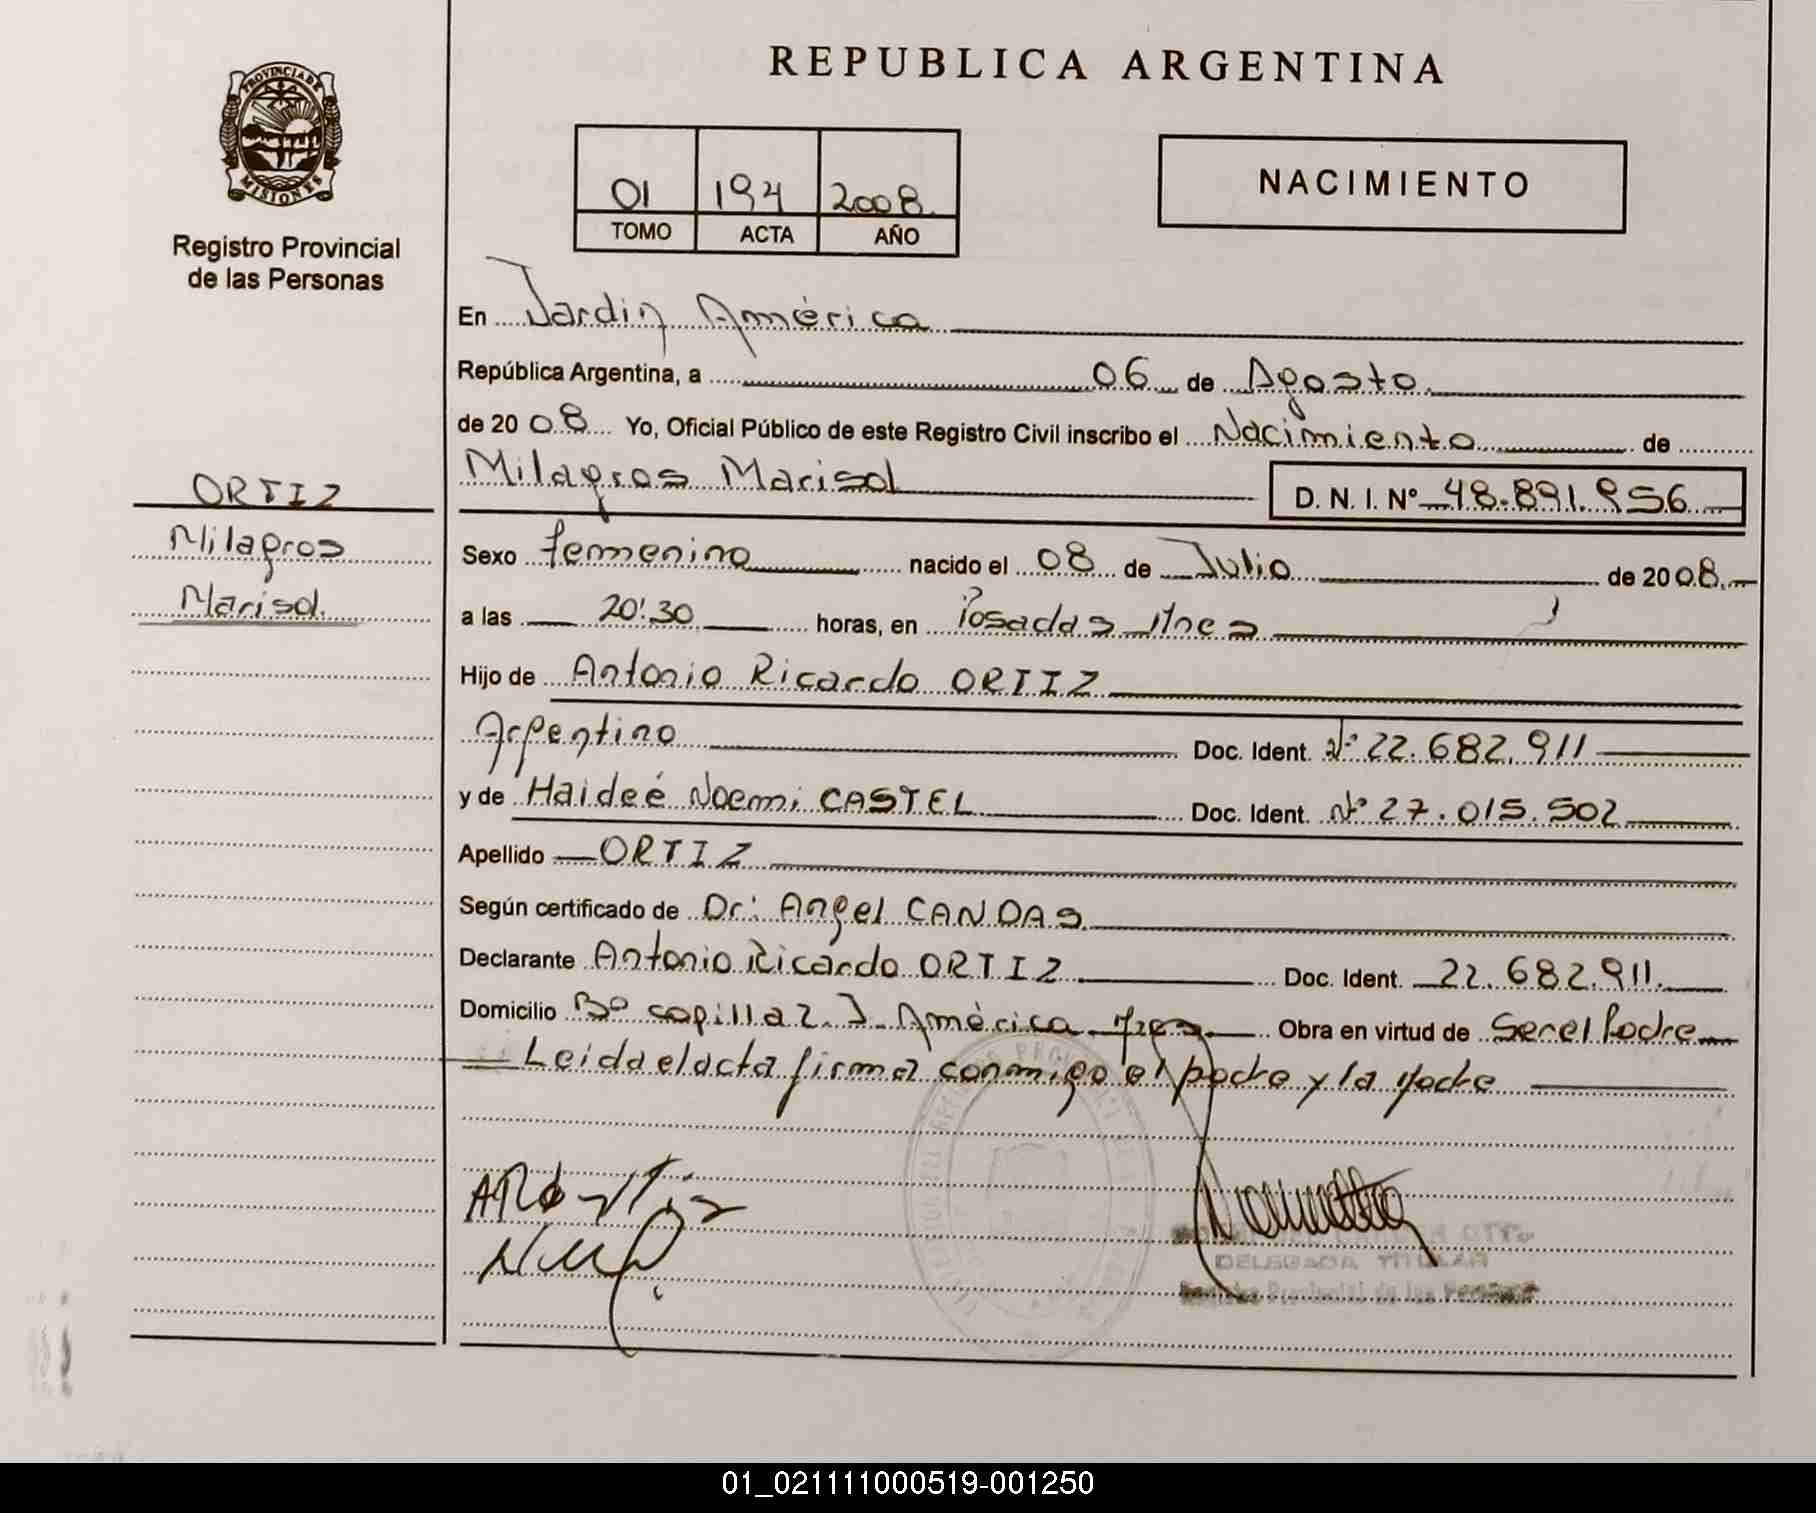 REPUBLICA ARGENTINA
PROVINCIA DE
MISIONES
Registro Provincial
de las Personas
01 194 2008
TOMO ACTA AÑO
NACIMIENTO
En Jardin América
República Argentina, a 06 de Agosto
de 2008 Yo, Oficial Público de este Registro Civil inscribo el Nacimiento de
Milagros Marisol D. N. I. Nº 48.891.956
ORTIZ
Milagros
Marisol
Sexo femenino nacido el 08 de Julio de 2008
a las 20:30 horas, en Posadas Mnes
Hijo de Antonio Ricardo ORTIZ
Argentino Doc. Ident. Nº 22.682.911
y de Haideé Noemi CASTEL Doc. Ident. Nº 27.015.502
Apellido ORTIZ
Según certificado de Dr: Angel CANDAS
Declarante Antonio Ricardo ORTIZ Doc. Ident. 22.682.911.
Domicilio Bº capilla 2. J. América Mnes Obra en virtud de Ser el Padre
Leida el acta firma conmigo el padre y la Madre
DELEGADA TITULAR
Registro Provincial de las Personas
01_021111000519-001250